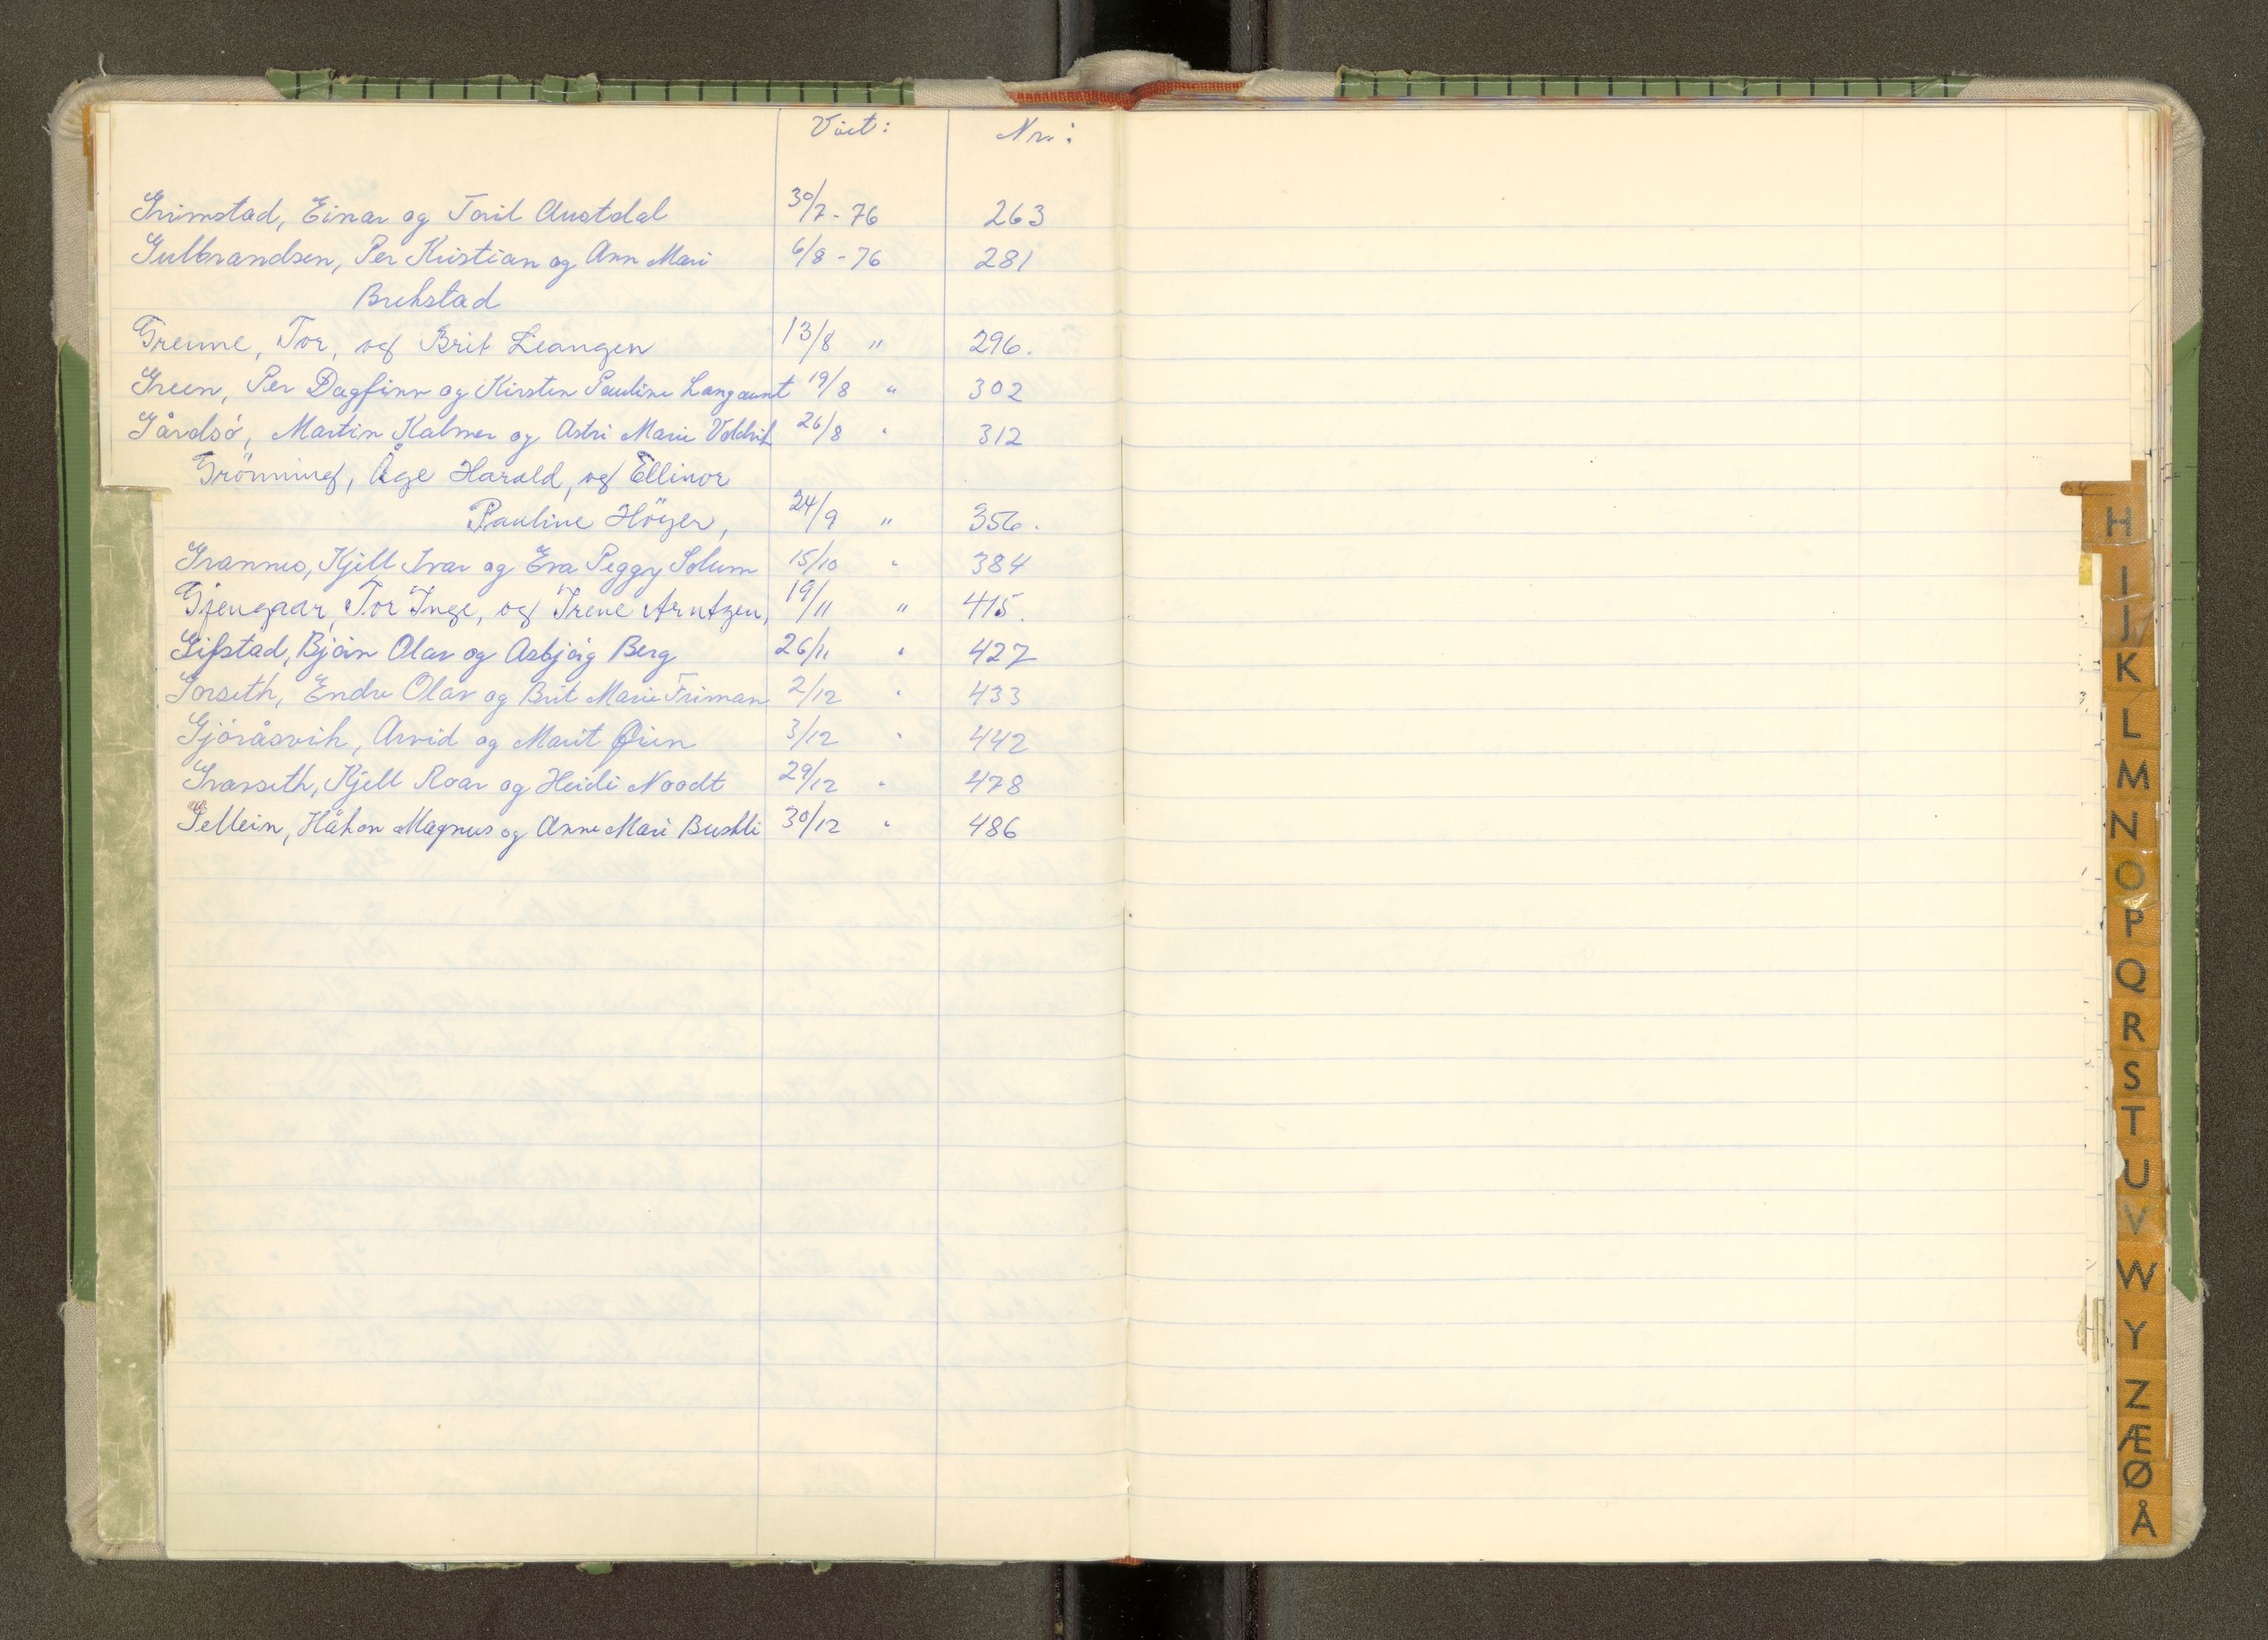 Viet: Nr.:
Grimstad, Einar og Toril Austdal 30/7 - 76 263
Gulbrandsen, Per Kristian og Ann Mari 6/8 - 76 281
Brekstad
Grenne, Tor, og Brit Leangen 13/8 " 296.
Green, Per Dagfinn og Kirsten Pauline Langaunt 19/8 " 302
Gårdsö, Martin Kalmer og Astri Marie 26/8 " 312
Grönning, Åge Harald, og Ellinor
Pauline Höyer, 24/9 " 356.
Grannes, Kjell Ivar og Eva Peggy Solum 15/10 " 384
Gjengaar, Tor Inge, og Irene Arntzen, 19/11 " 415.
Gifstad, Björn Olav og Asbjörg Berg 26/11 " 427
Gorseth, Endre Olav og Brit Marie Friman 2/12 " 433
Gjöråsvik, Arvid og Marit Øien 3/12 " 442
Kjell Roar og Heidi Noodt 29/12 " 478
Gellein, Håkon Magnus og Anne Mari Buskli 30/12 " 486
H
I
J
K
L
M
N
O
P
Q
R
S
T
U
V
W
Y
Z
Æ
Ø
Å